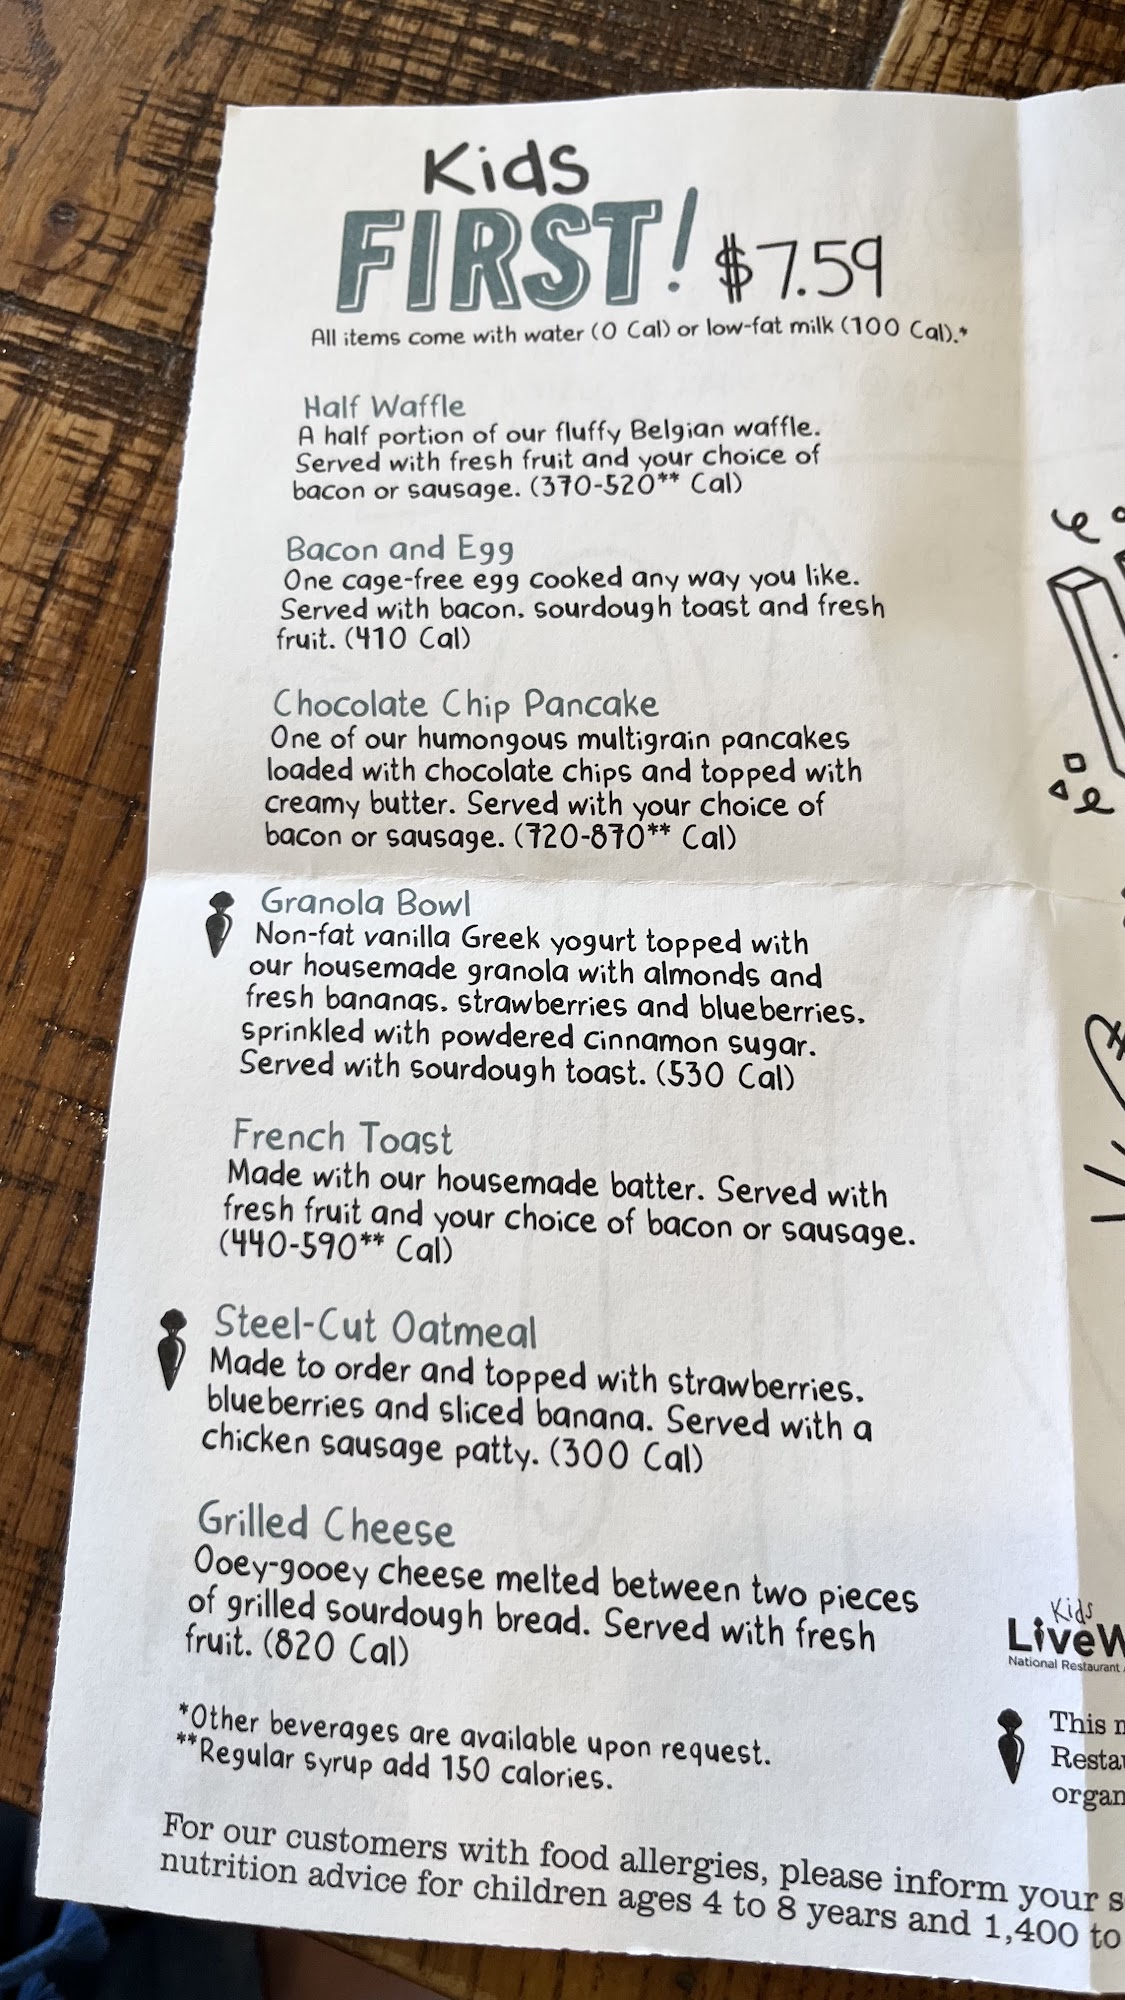 Kids
FIRST! $7.59
All items come with water (0 Cal) or low-fat milk (100 Cal).*
Half Waffle
A half portion of our fluffy Belgian waffle.
Served with fresh fruit and your choice of
bacon or sausage. (370-520** Cal)
Bacon and Egg
One cage-free egg cooked any way you like.
Served with bacon, sourdough toast and fresh
fruit. (410 Cal)
Chocolate Chip Pancake
One of our humongous multigrain pancakes
loaded with chocolate chips and topped with
creamy butter. Served with your choice of
bacon or sausage. (720-870** Cal)
Granola Bowl
Non-fat vanilla Greek yogurt topped with
our housemade granola with almonds and
fresh bananas, strawberries and blueberries,
sprinkled with powdered cinnamon sugar.
Served with sourdough toast. (530 Cal)
French Toast
Made with our housemade batter. Served with
fresh fruit and your choice of bacon or sausage.
(440-590** Cal)
Steel-Cut Oatmeal
Made to order and topped with strawberries,
blueberries and sliced banana. Served with a
chicken sausage patty. (300 Cal)
Grilled Cheese
Ooey-gooey cheese melted between two pieces
of grilled sourdough bread. Served with fresh
fruit. (820 Cal)
*Other beverages are available upon request.
**Regular syrup add 150 calories.
Kids
LiveW
National Restaurant
This
Restau
organ
For our customers with food allergies, please inform your s
nutrition advice for children ages 4 to 8 years and 1,400 to